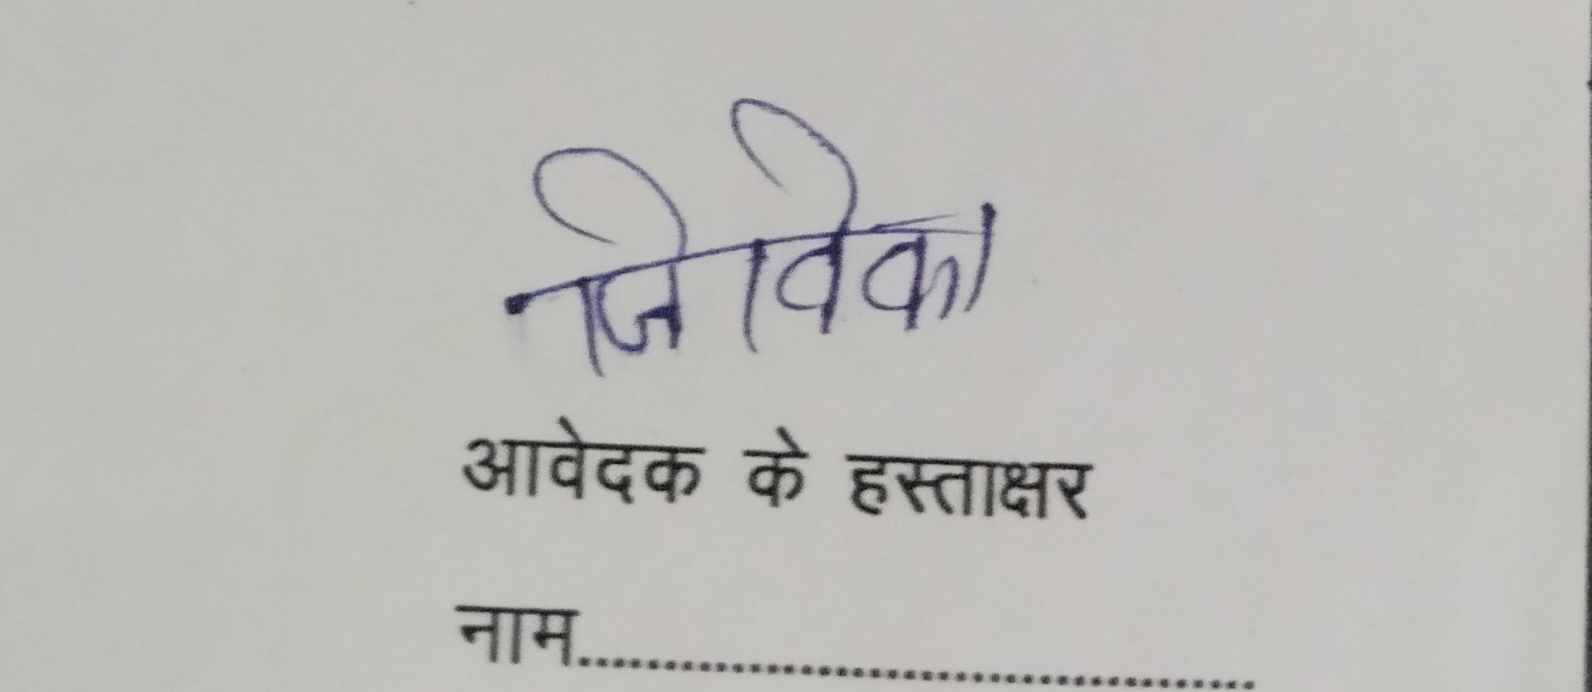 जिविका
आवेदक के हस्ताक्षर
नाम..................................................